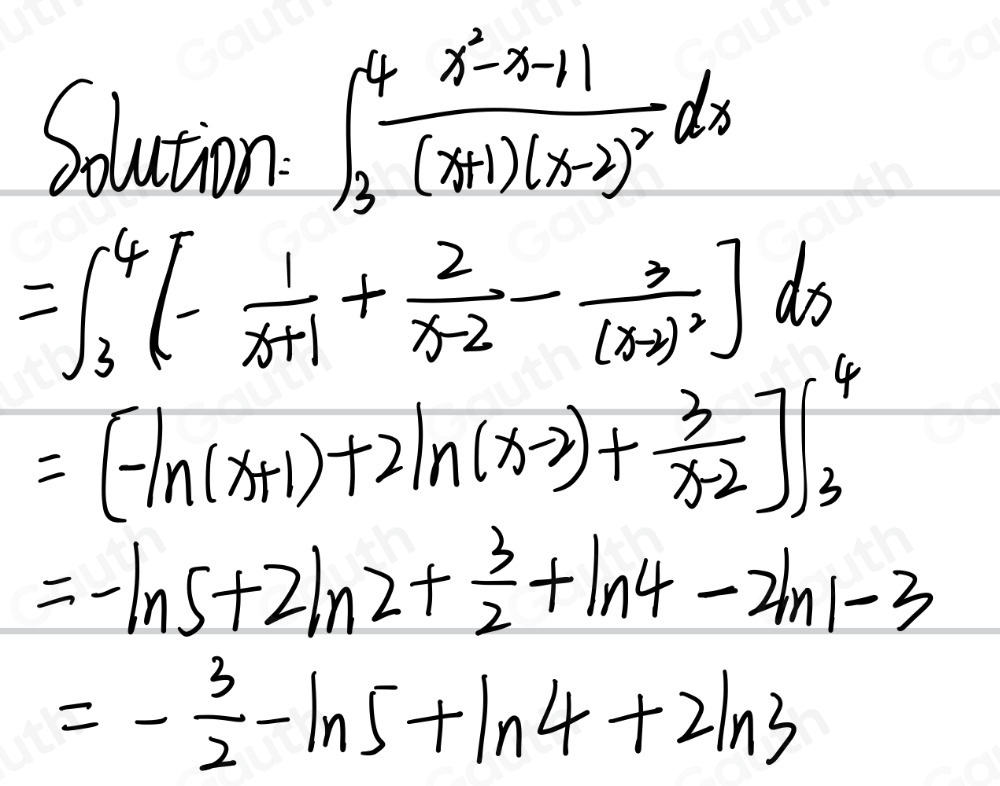 Solution: ∫₃⁴ (x²-x-11)/((x+1)(x-2)²) dx
= ∫₃⁴ [- 1/(x+1) + 2/(x-2) - 3/(x-2)²] dx
= [-ln(x+1)+2ln(x-2)+ 3/(x-2)]∫₃⁴
= -ln5+2ln2+ 3/2 +ln4-2ln1-3
= - 3/2 -ln5+ln4+2ln3